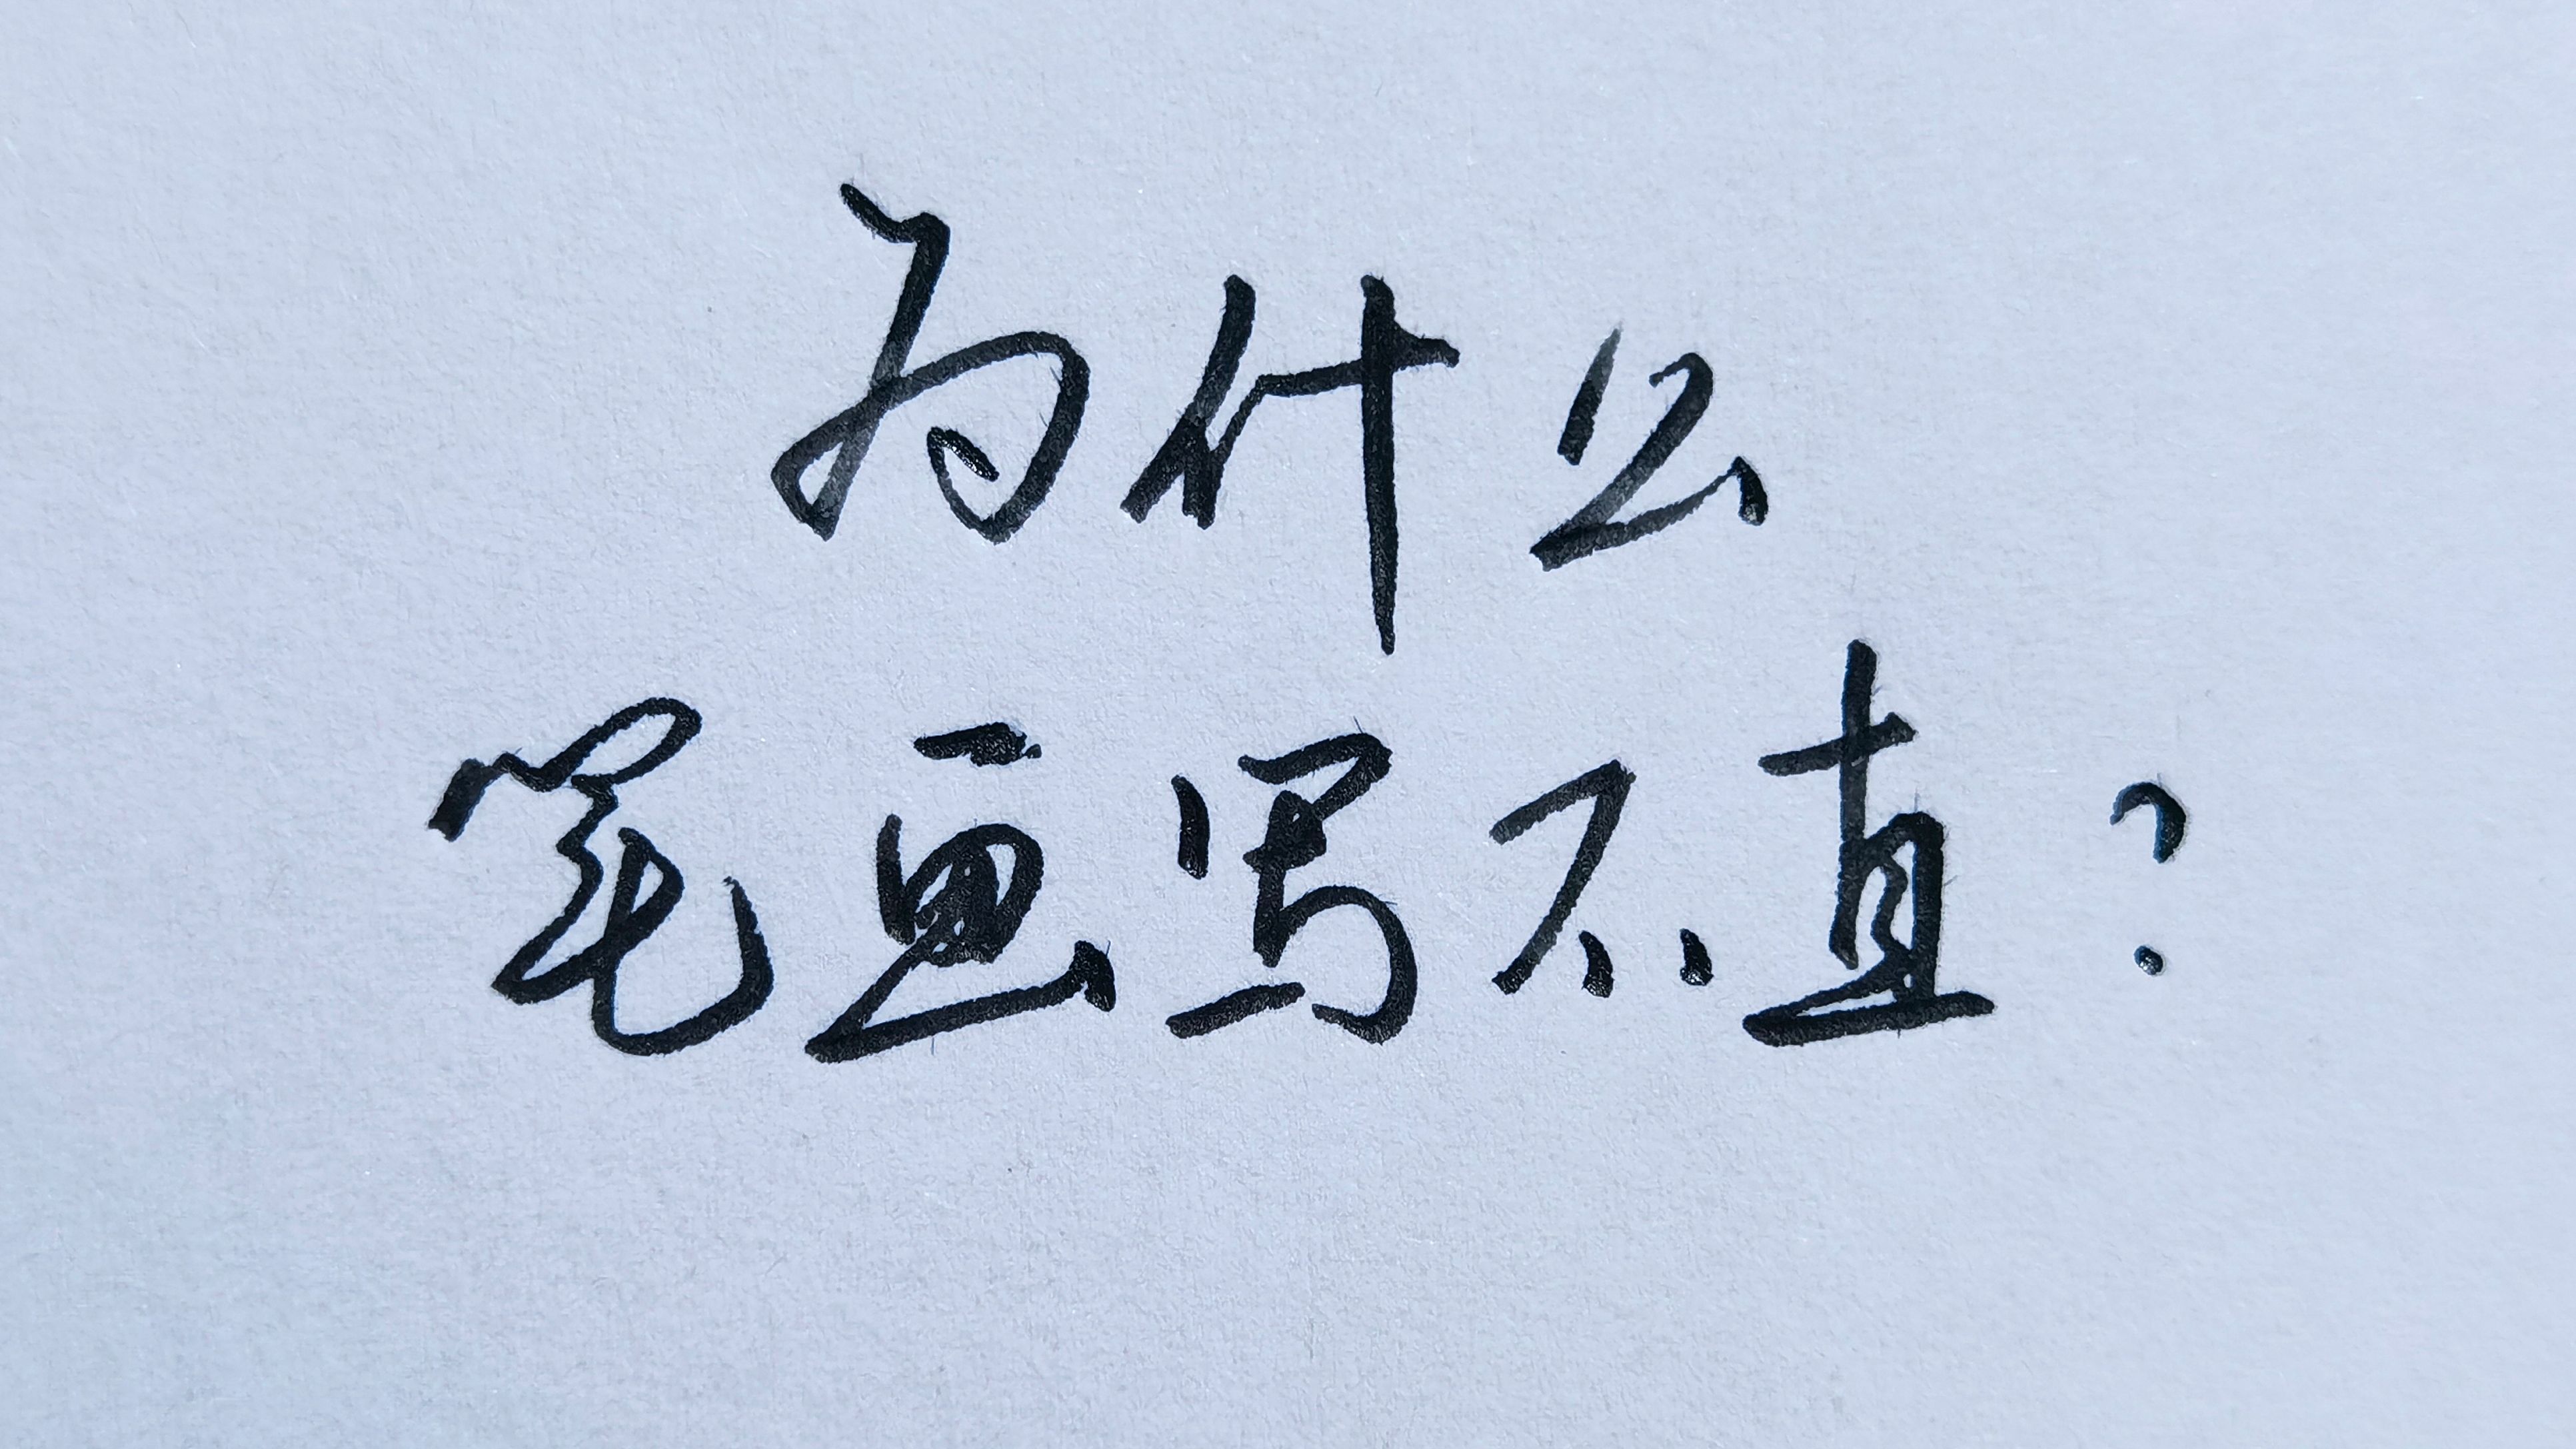 为什么
笔画写不直?